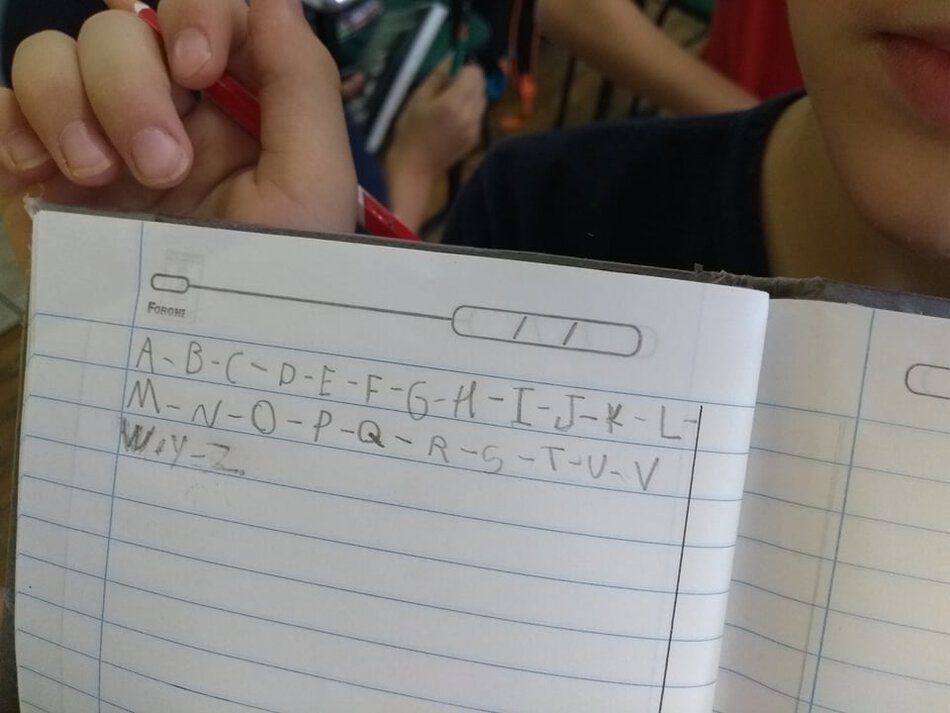 FORONI
A - B - C - D - E - F - G - H - I - J - K - L -
M - N - O - P - Q - R - S - T - U - V
W.Y - Z.